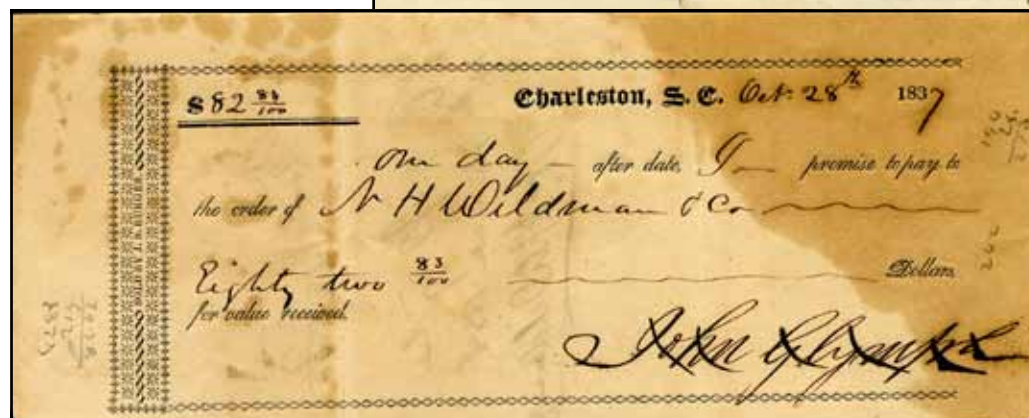 $ 82 83/100 Charleston, S. C. Oct. 28th 1837
One day after date, I promise to pay to
the order of N H Wildman & Co
Eighty two 83/100 Dollars,
for value received.
John